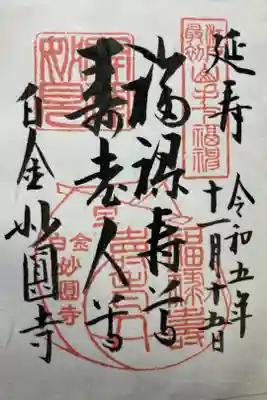 延寿
令和五年
十一月十五日
福禄寿尊
寿老人尊
白金 妙圓寺
福禄壽
壽老人
白金
妙圓寺